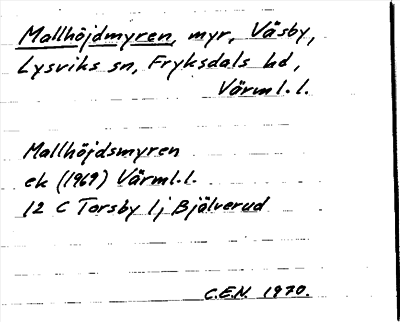 Mallhöjdmyren, myr, Väsby,
Lysviks sn, Fryksdals hd,
Värml.l.
Mallhöjdsmyren
ek (1969) Värml.l.
12 C Torsby 1j Bjälverud
C.E.N. 1970.